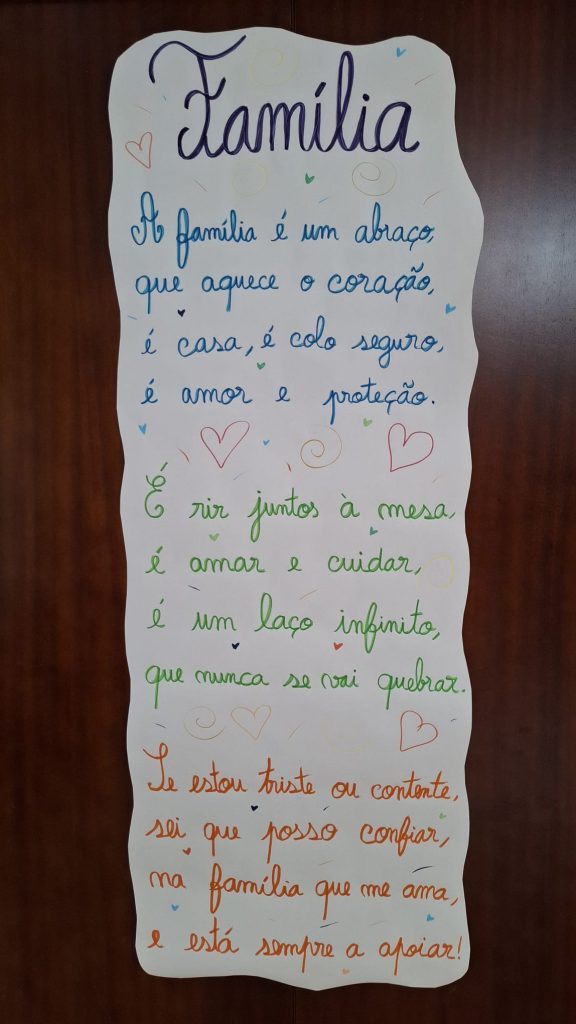 Família
A família é um abraço,
que aquece o coração,
é casa, é colo seguro,
é amor e proteção.
É rir juntos à mesa,
é amar e cuidar,
é um laço infinito,
que nunca se vai quebrar.
Se estou triste ou contente,
sei que posso confiar,
na família que me ama,
e está sempre a apoiar!